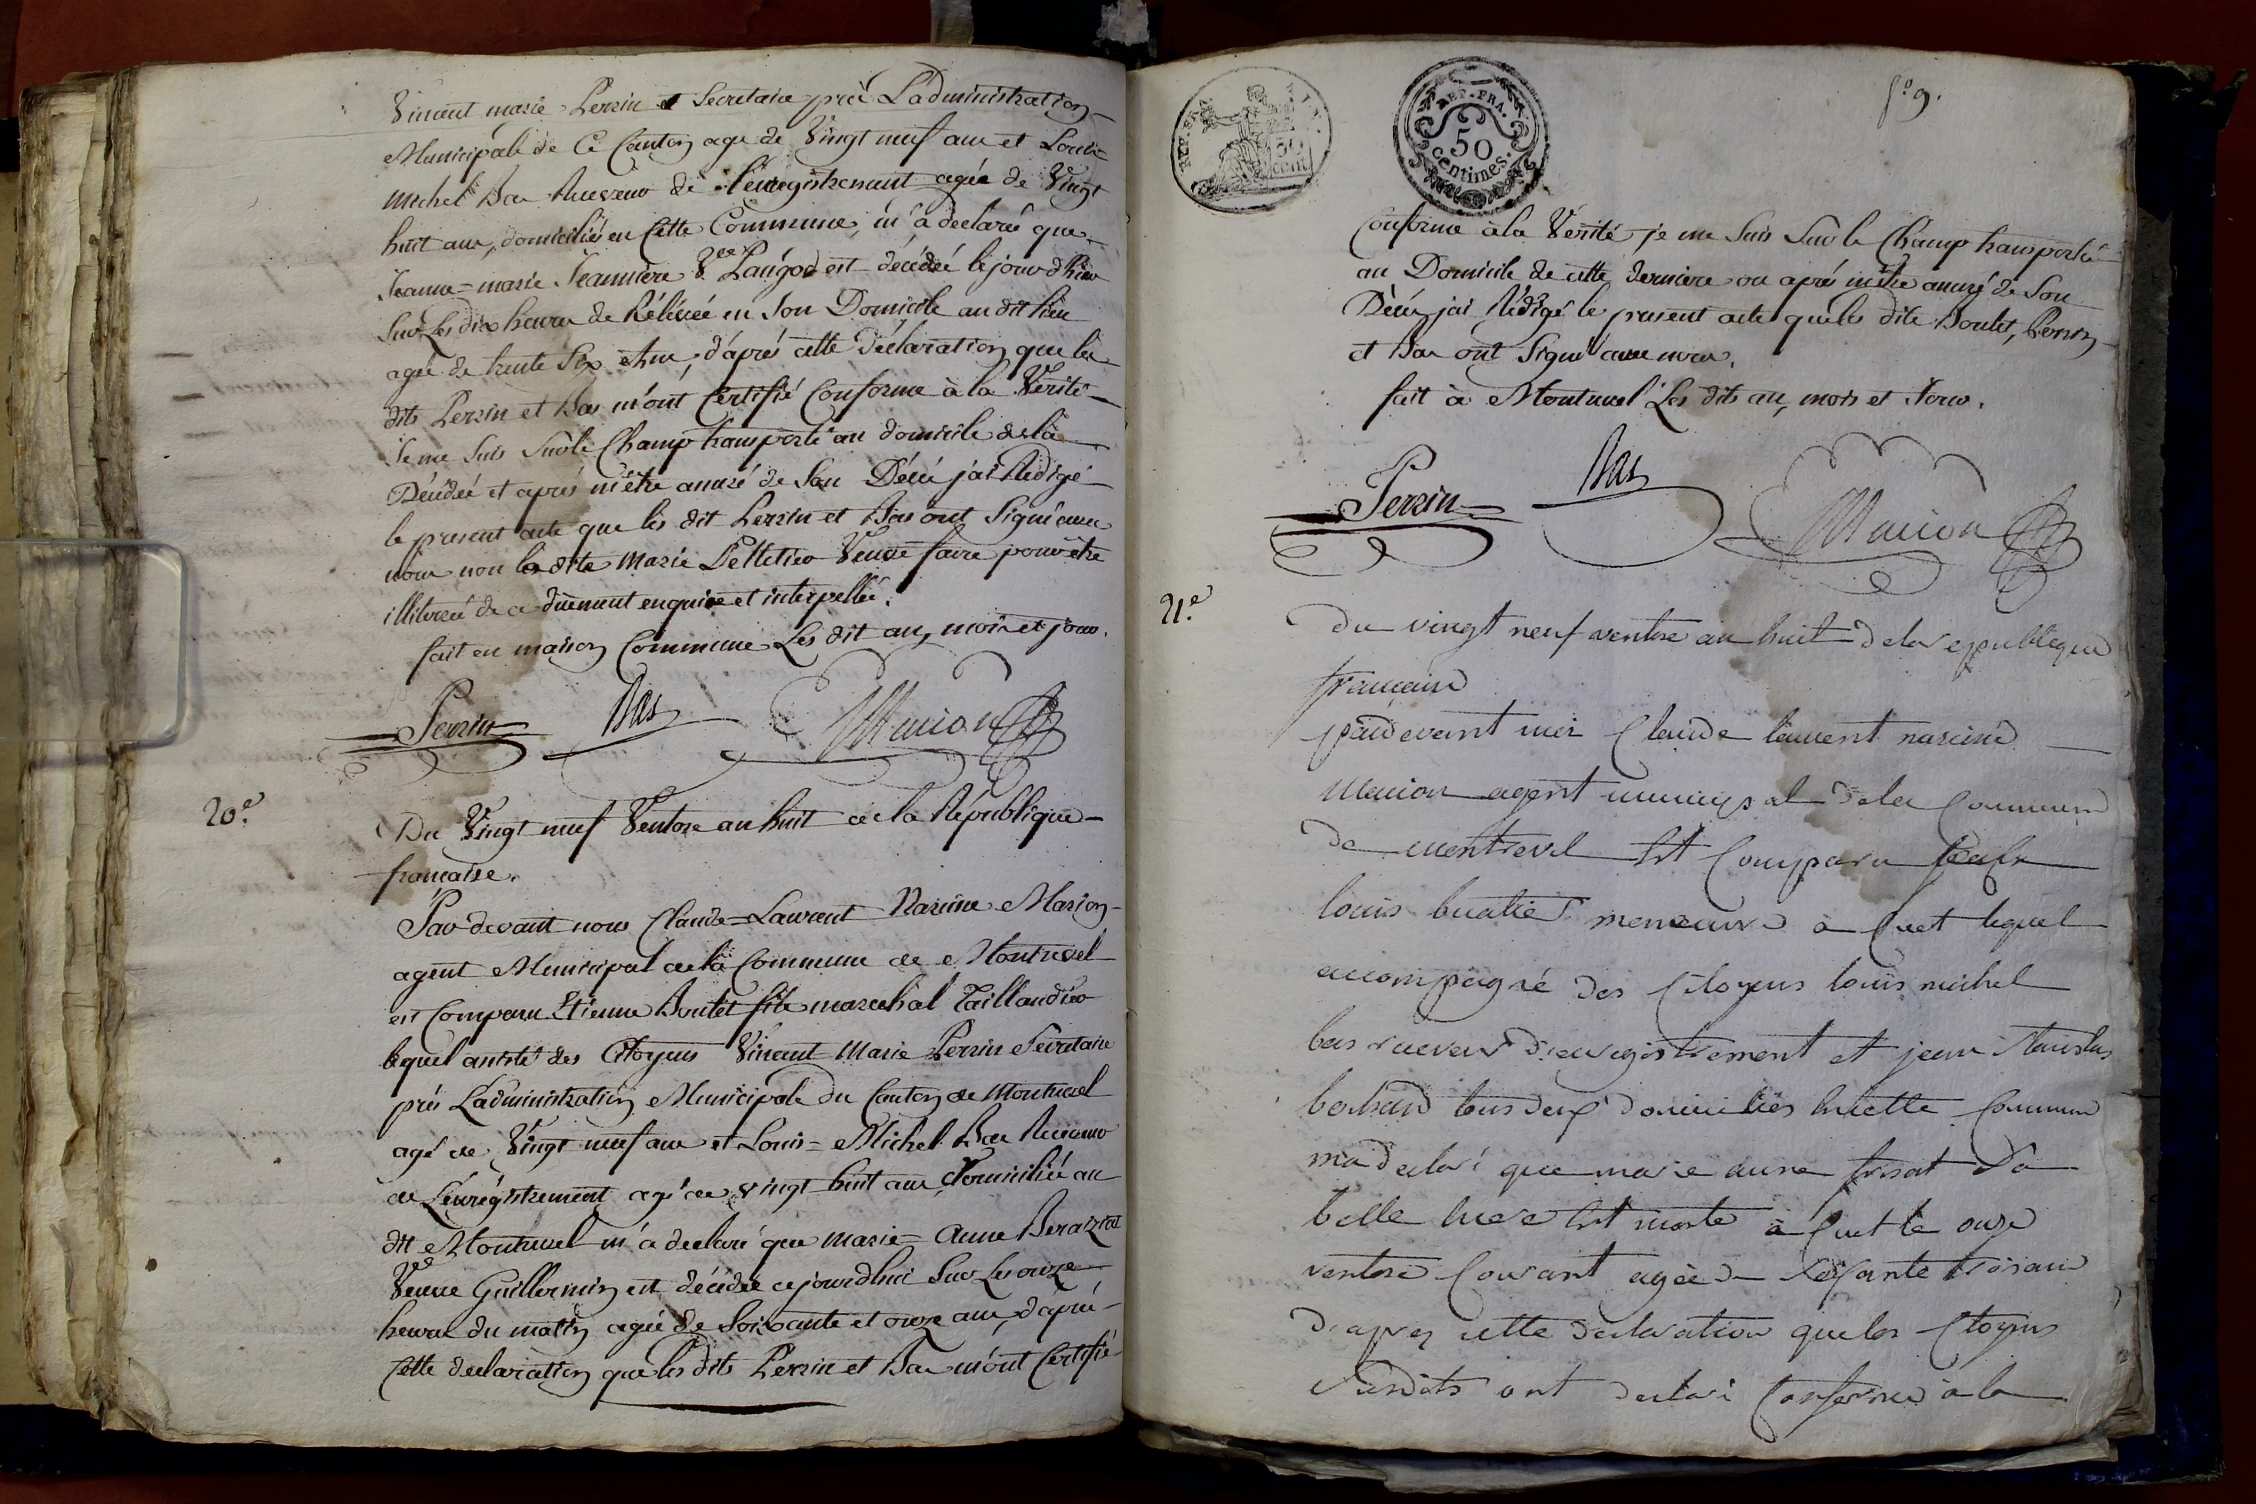 Vincent marie Perrin et Secretaire près L'administration
Municipale de Ce Canton agé de Vingt neuf ans et Louis
Michel Bas Receveur de L'enregistrement agée de Vingt
huit ans, domiciliés en Cette Commune, m'a declaré que
Jeanne=marie Jeanniere Vee est décédée le jour d'hier
Sur Les dix heures de Rélévée en Son Domicile au dit lieu
agée de trente Six Ans, d'après cette Déclaration que les
dits Perrin et Bas m'ont Certifié Conforme à la Vérité
Je me Suis Sur le Champ transporté au domicile de la
Décédée et après m'être assuré de Son Décès j'ai Rédigé
le present acte que les dit Perrin et Bas ont Signé avec
nous non la dite Marie Pelletier Veuve faire pour être
illiterée de ce duement enquise et interpellée.
fait en maison Commune Les dit an, mois et jour.
Perrin Bas Marion
20.e
Du Vingt neuf Ventose an huit de la République
francaise.
Par devant nous Claude=Laurent Narcisse Marion
agent Municipal de la Commune de Montrevel
est Comparu Etienne Boulet fils marechal Taillandier
lequel assisté des Citoyens Vincent Marie Perrin Secretaire
près L'administration Municipale du Canton de Montrevel
agé de Vingt neuf ans et Louis=Michel Bas Receveur
de L'enrégistrement agé de vingt huit ans, domiciliés au
dit Montrevel m'a declaré que Marie=Anne Beraizat
Vee Veuve Guillermin est décédée cejourdhui Sur Les onze
heures du matin agée de Soixante et onze ans, d'après
Cette declaration que les dits Perrin et Bas m'ont Certifié
REP. FRA.
50
centimes.
f.o 9.
Conforme à la Vérité je me Suis Sur le Champ transporté
au Domicile de cette derniere ou après m'être assuré de Son
Décès j'ai Rédigé le present acte que les dits Boulet, Perrin
et Bas ont Signé avec nous.
fait à Montrevel Les dits an, mois et Jour.
Perrin Bas Marion
21.e
Du vingt neuf ventose an huit de la republique
francaise
pardevant moi Claude laurent narcisse
Marion agent municipal de la Commune
de montrevel Est Comparu
louis buatier à Cuet lequel
accompagné des Citoyens louis michel
bas receveur d'enregistrement et jean
tous deux domicilies en cette Commune
m'a declaré que marie anne Sa
belle mere Est morte à Cuet le onze
ventose Courant agée de Soixante trois ans
d'apres cette declaration que les Citoyens
Susdits ont declaré Conforme à la